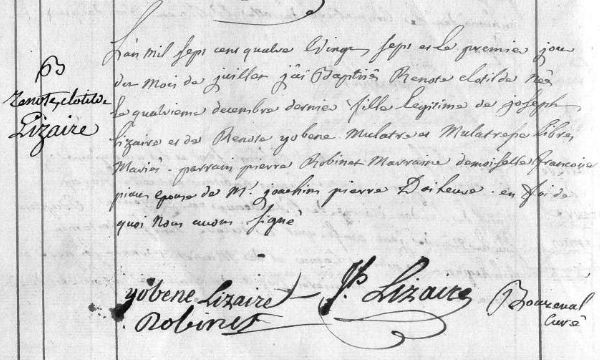 B
Renote clotilde
Lizaire
L'an mil sept cent quatre Vingt sept et le premier jour
du Mois de juillet j'ai Baptisée Renote clotilde née
le quatrieme decembre dernie fille legitime de joseph
Lizaire et de Renote yobene Mulatre et Mulatresse libres
Mariés. parrain pierre Robinet Marraine demoiselle francoise
epouse de Mr. joachim pierre en foi de
quoi Nous avons signé
yobene Lizaire Jh. Lizaire
Robinet
Curé